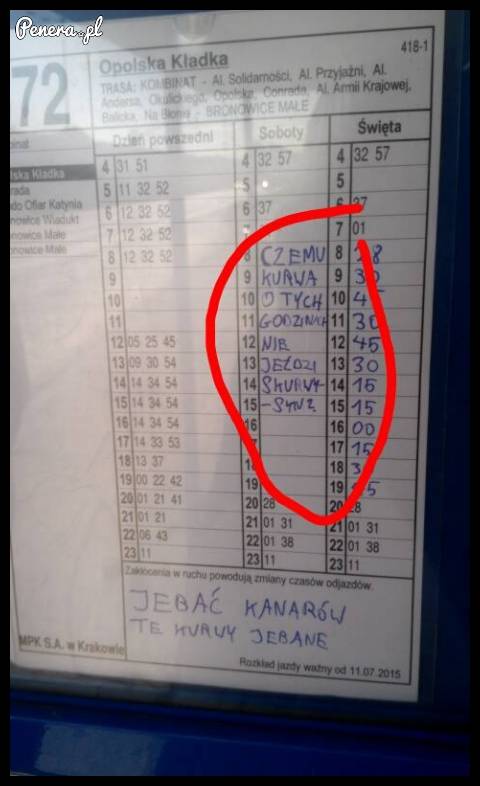 Penera.pl
418-1
72
Opolska Kładka
TRASA: KOMBINAT - Al. Solidarności, Al. Przyjaźni, Al.
Andersa, Okulickiego, Opolska, Conrada, Al. Armii Krajowej,
Balicka, Na Błonie - BRONOWICE MAŁE
Dzień powszedni Soboty Święta
4 31 51 4 32 57 4 32 57
5 11 32 52 5 5
6 12 32 52 6 37 6 37
7 12 32 52 7 01
8 12 32 52 8 CZEMU 8
9 9 KURWA 9 30
10 10 O TYCH 10 45
11 11 GODZINACH 11 30
12 05 25 45 12 NIE 12 45
13 09 30 54 13 JEŹDZI 13 30
14 14 34 54 14 SKURWY 14 15
15 14 34 54 15 -SYNZ 15 15
16 14 34 54 16 16 00
17 14 33 53 17 15
18 13 37 18 18
19 00 22 42 19 19
20 01 21 41 20 28 20 28
21 01 21 21 01 31 21 01 31
22 06 43 22 01 38 22 01 38
23 11 23 11 23 11
Zakłócenia w ruchu powodują zmiany czasów odjazdów.
JEBAĆ KANARÓW
TE KURWY JEBANE
MPK S.A. w Krakowie
Rozkład jazdy ważny od 11.07.2015